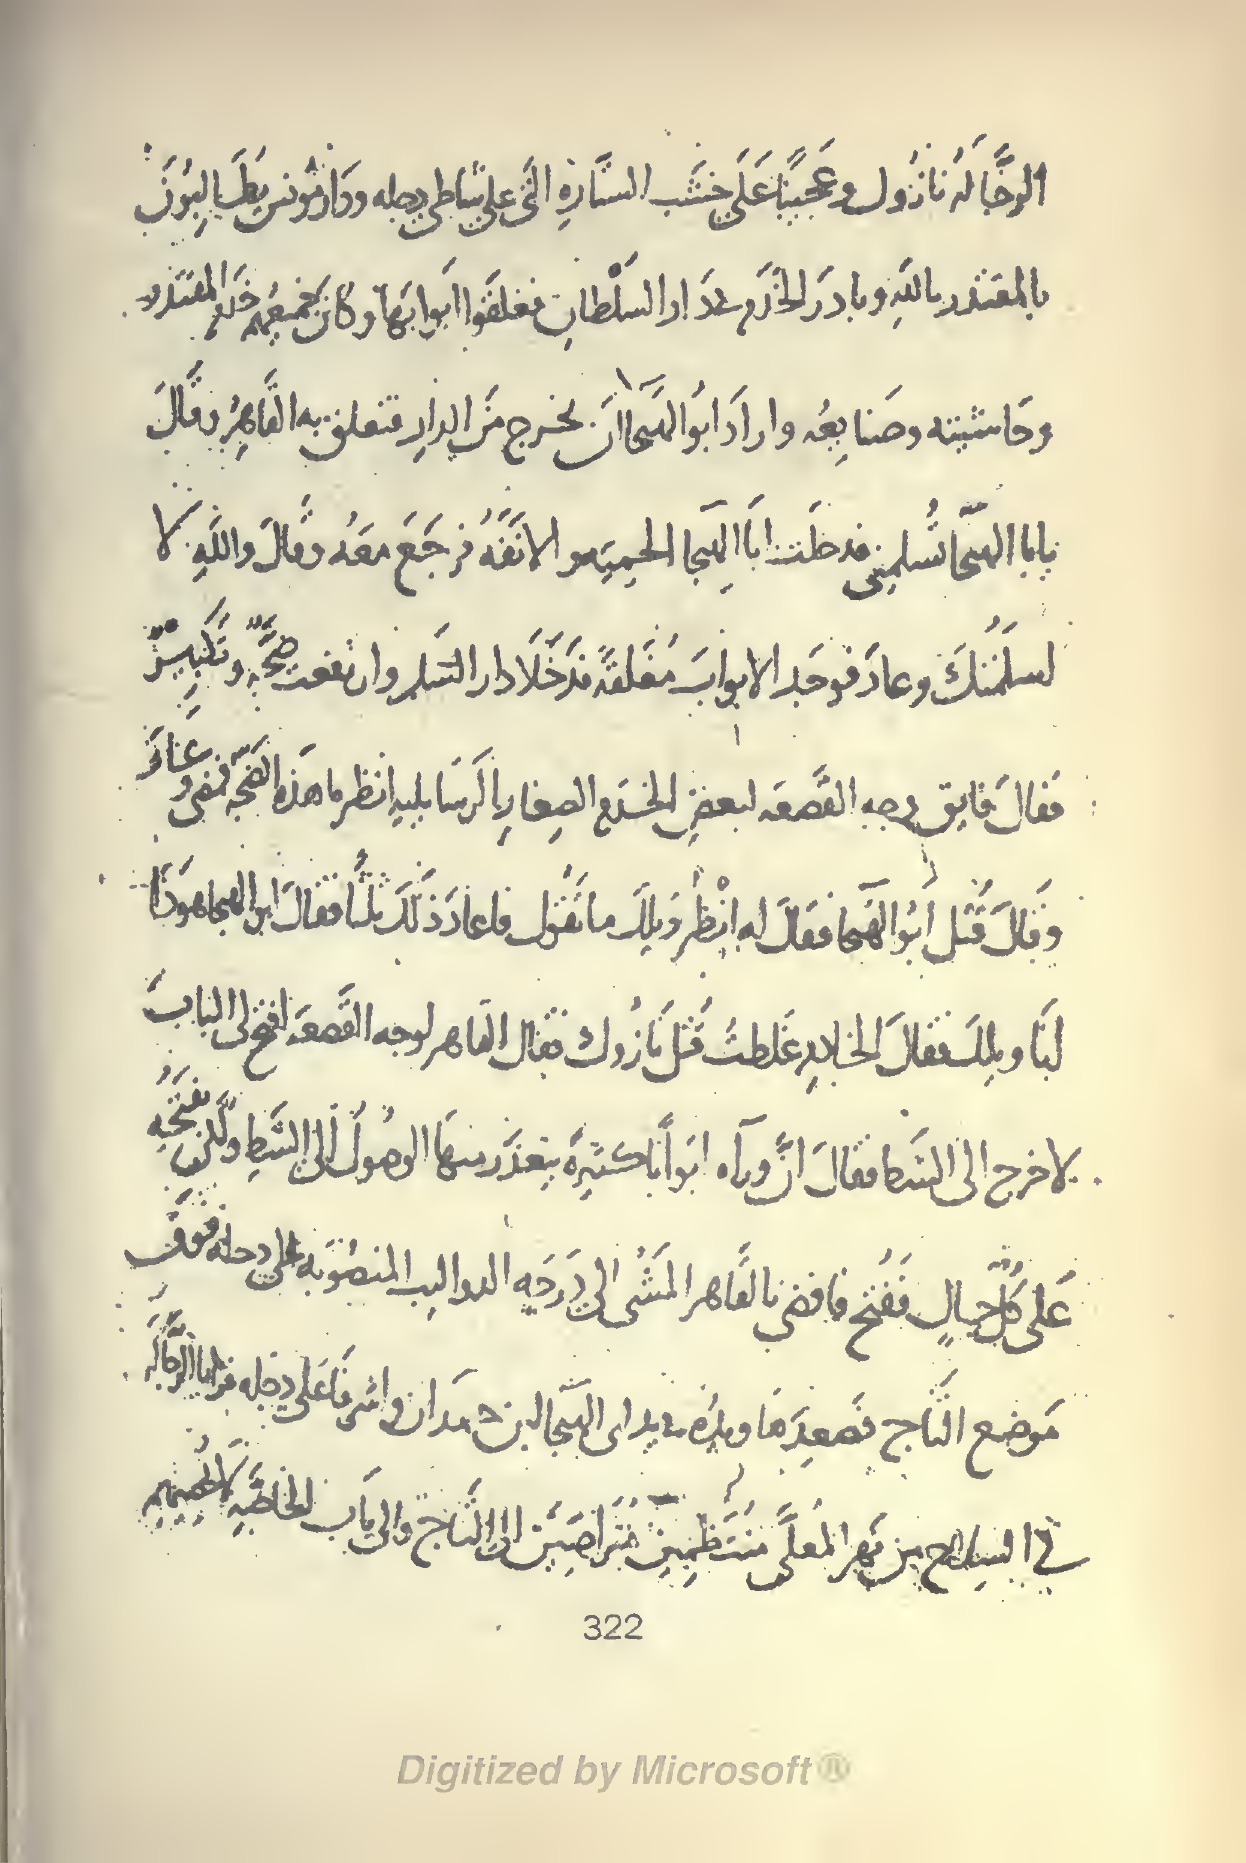 الرجّالة نازوك وعجيبًا على خشب الستارة التي على شاطئ دجله ودار مونس يطالبون
بالمقتدر بالله وبادر الخدم في دار السلطان فغلقوا ابوابها وكان جميعهم خدم المقتدر
وحاشيته وصنايعه واراد ابو الهيجا ان يخرج من الدار فتعلق به القاهر وقال
يابا الهيجا تُسلمني فدخلت ابا الهيجا الحمية والانفة فرجع معه وقال والله لا
اسلمتك وعاد فوجد الابواب مغلقة فدخلا دار السلم وارتفعت ضجّة وتكبير
فقال فايق وجه القصعه لبعض الخدم الصغار الرسايليه انظر ما هذه الضجّه فمضى وعاد
وقال قُتل ابو الهيجا فقال له انظر ويلك ما تقول فاعاد ذلك ثلثا فقال ابو الهيجا هوذا
انا ويلك فقال الخادم غلطتُ قُتل نازوك فقال القاهر لوجه القصعة افتح لي الباب
لاخرج الى الشط فقال ان وراه ابوابًا كثيرة يتعذر منها الوصول الى الشط ولكن نفتحه
على كل حال ففتح فافضى بالقاهر المشى الى درجه الدواليب المنصوبه على دجله فوق
موضع التاج فصعدها ويده في يد ابي الهيجا ابن حمدان واشرفا على دجله فرايا الرجّاله
في السلاح من نهر المعلّى منتظمين متراصّين الى التاج والى باب الخاصّه
322
Digitized by Microsoft®